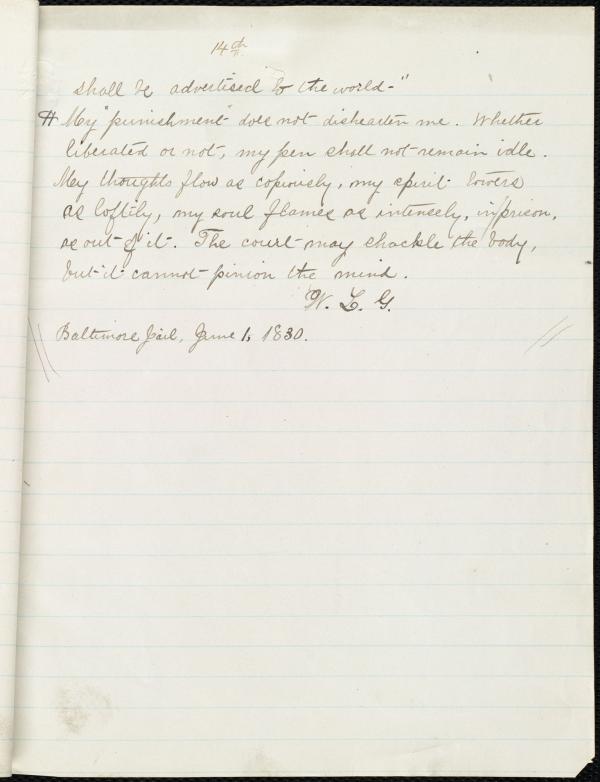 14th
shall be advertised to the world-"
# My "punishment" does not dishearten me. Whether
liberated or not, my pen shall not remain idle.
My thoughts flow as copiously, my spirit towers
as loftily, my soul flames as intensely, in prison,
as out of it. The court may shackle the body,
but it cannot pinion the mind.
W. L. G.
Baltimore Jail, June 1, 1830.